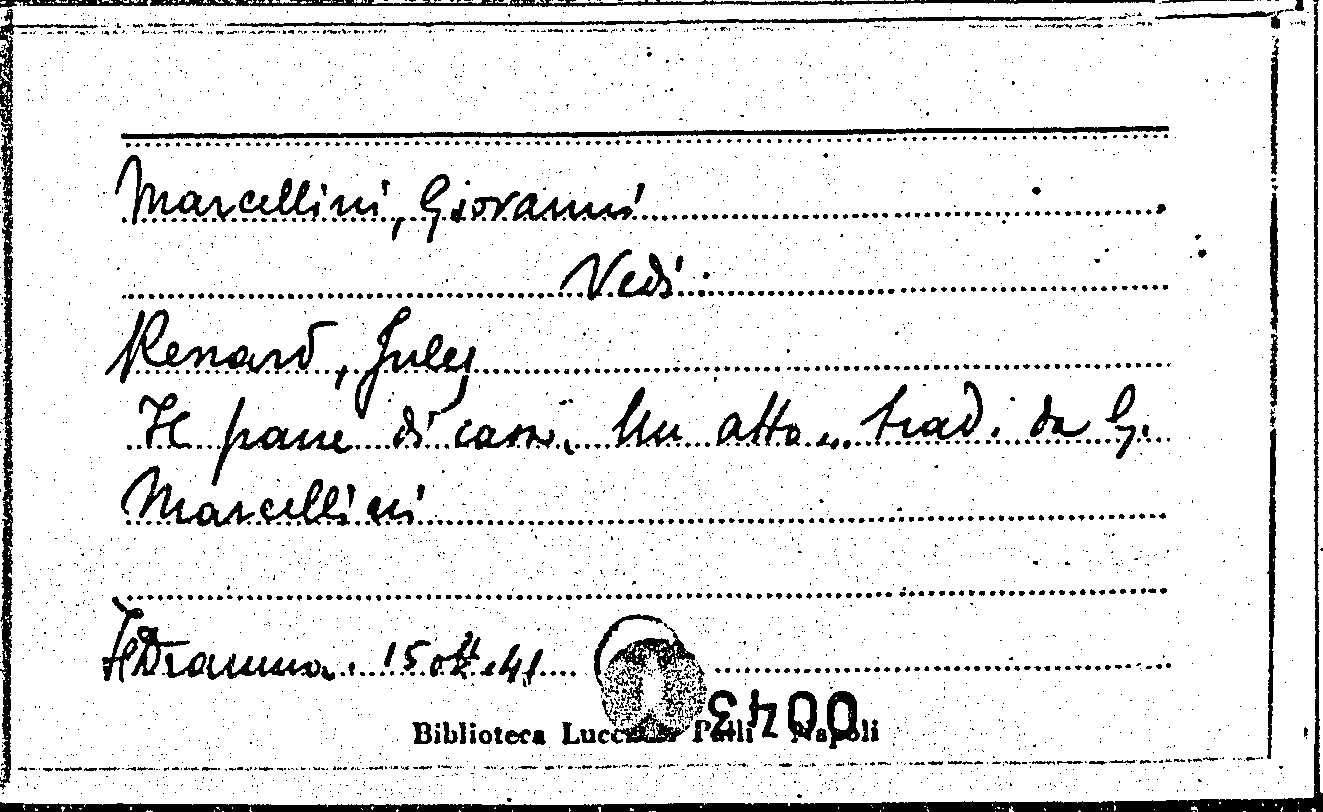 Marcellini, Giovanni
Vedi:
Renard, Jules
Il pane di casa. Un atto... trad. da G.
Marcellini
Il Dramma. 15 ott. 41
0043
Biblioteca Lucchesi Palli Napoli